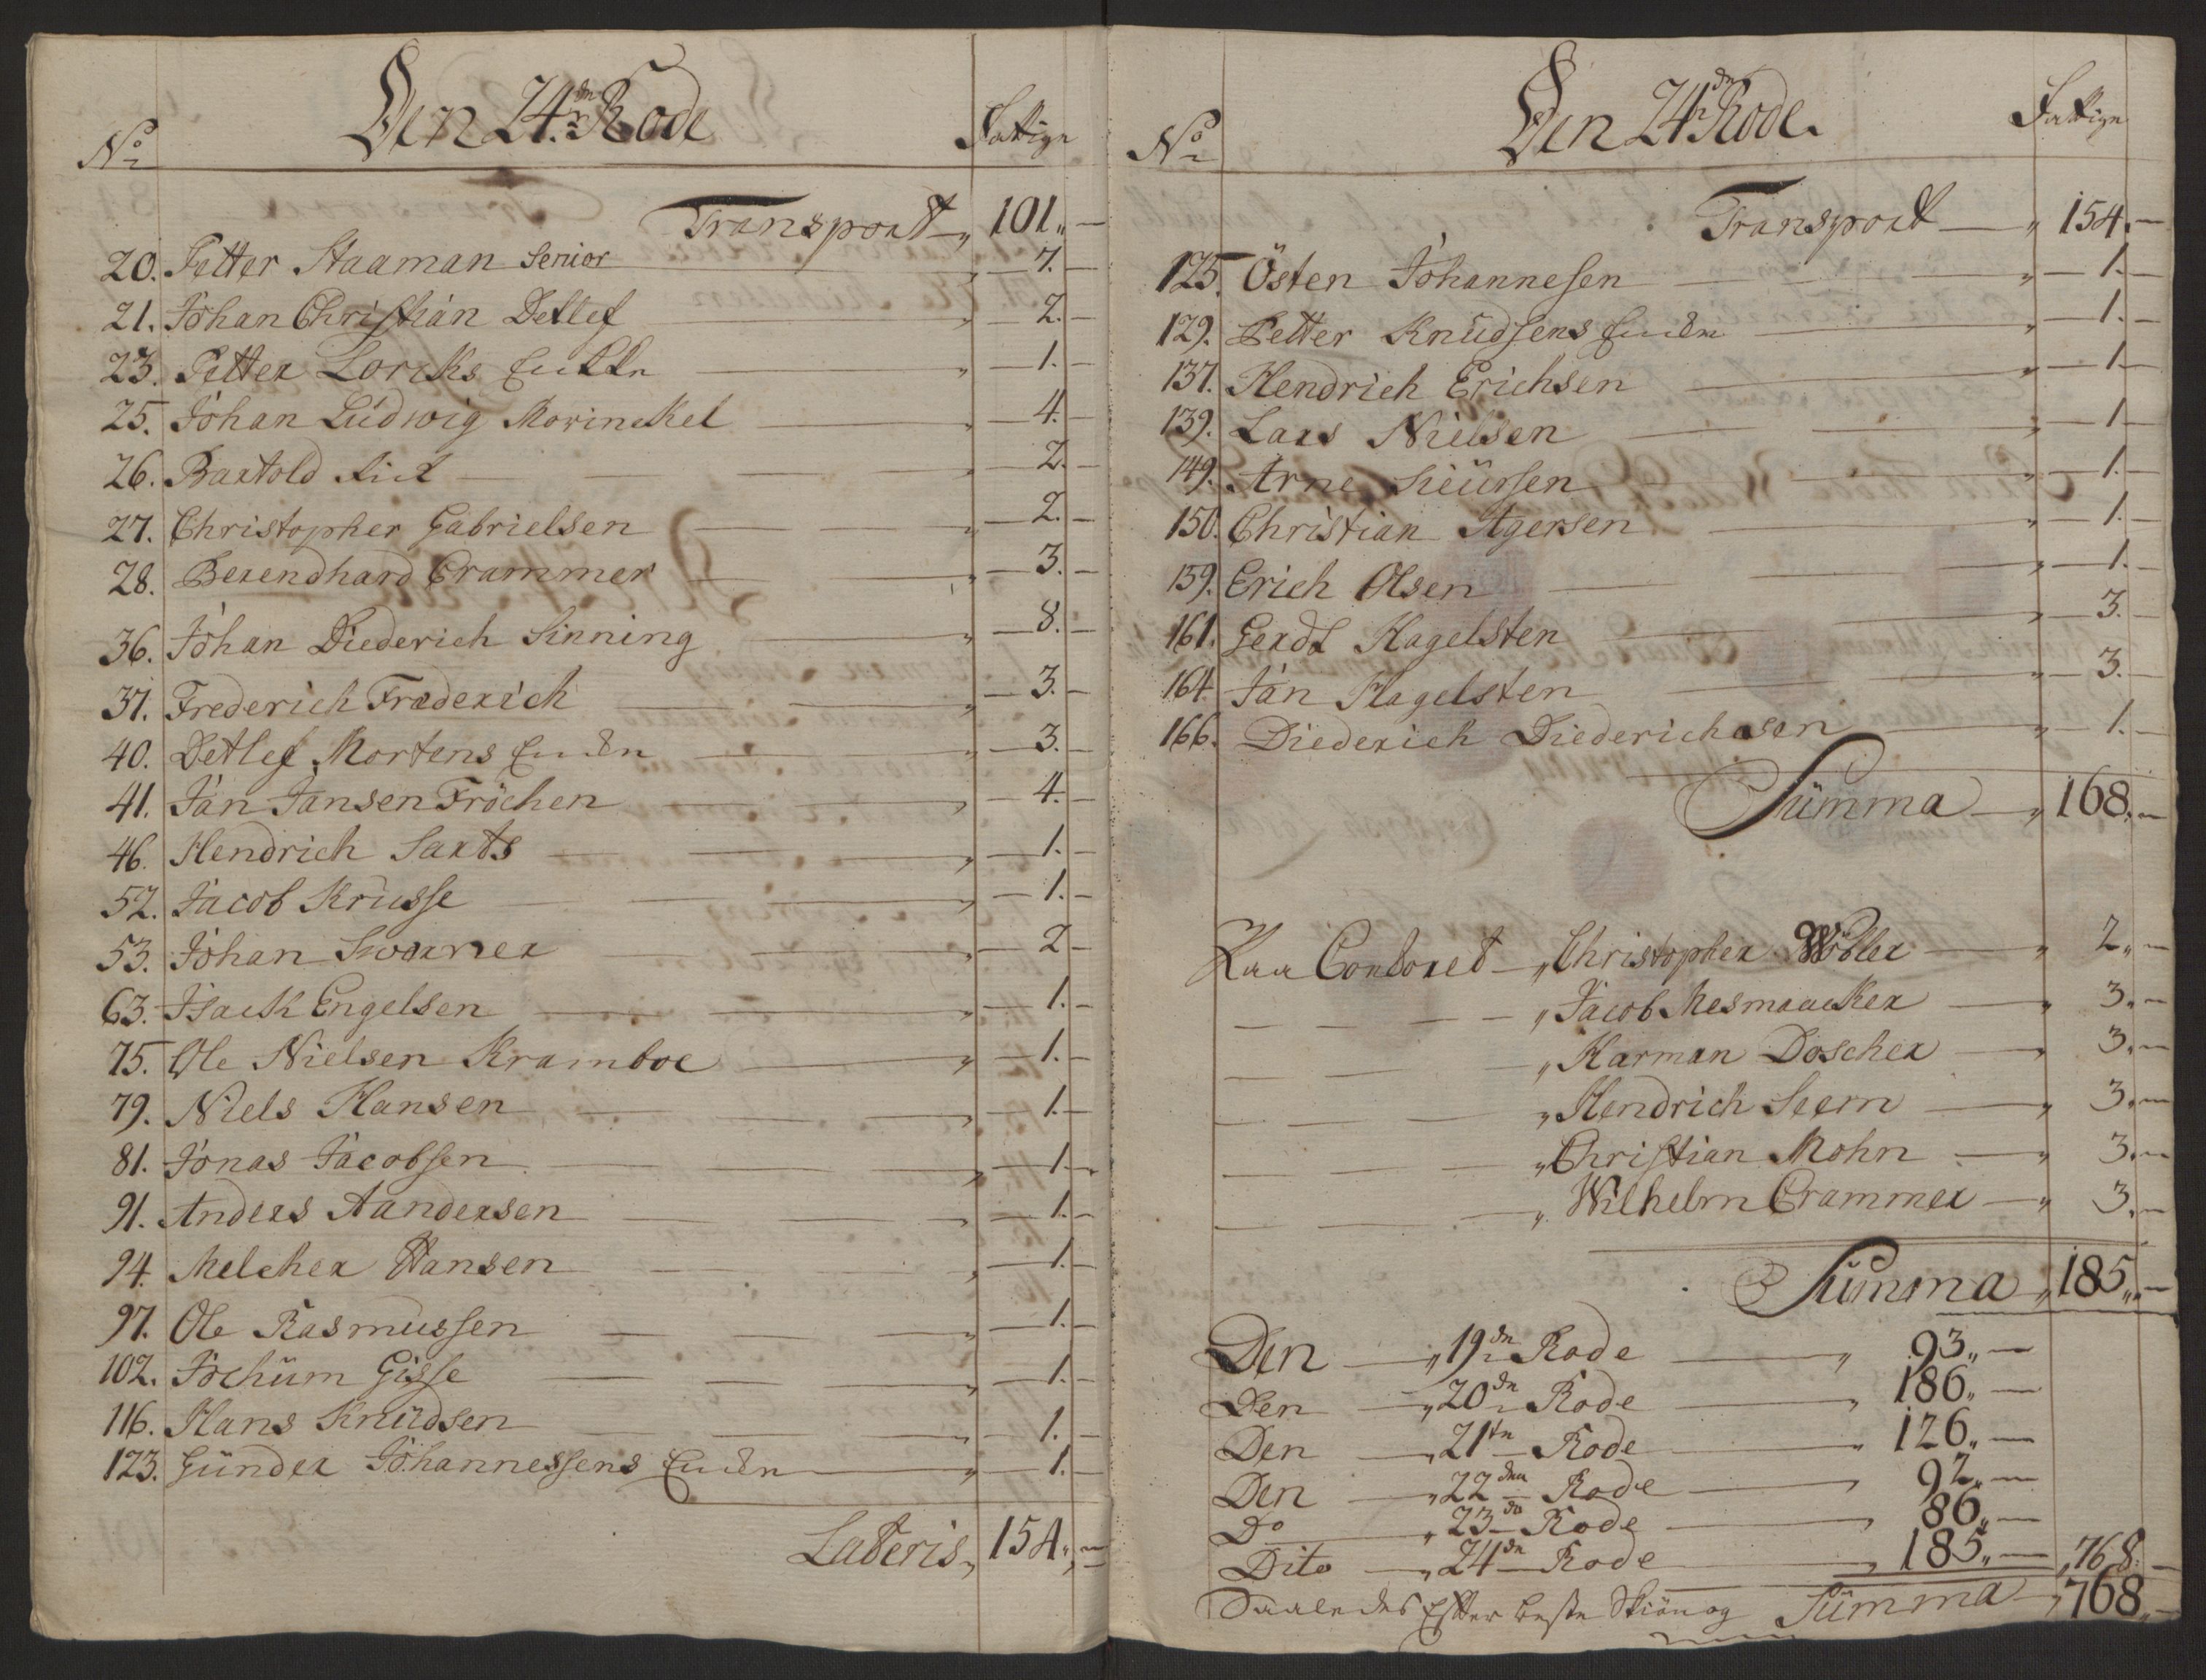 Den 24.dn Rode
No
Fattige
Transport 101. —
20. Petter Staaman Senior — 7. —
21. Johan Christian Detlef — 2. —
23. Petter Lorcks Enkke — 1. —
25. Johan Ludwig Morinckel — 4. —
26. Bartold — 2. —
27. Christopher Gabrielsen — 2. —
28. Berendhard Crammer — 3. —
36. Johan Diederich Sinning — 8. —
37. Frederich Frederich — 3. —
40. Detlef Mortens — 3. —
41. Jan Jansen Fröchen — 4. —
46. Hendrich Saxts — 1. —
52. Jacob Krusse — 1. —
53. Johan Sworner — 2 —
63. Isack Engelsen — 1. —
75. Ole Nielsen Kramboe — 1. —
79. Niels Hansen — 1. —
81. Jonas Jacobsen — 1. —
91. Anders Aandersen — 1. —
94. Melcher Hansen — 1. —
97. Ole Rasmussen — 1. —
102. Jochüm Gisse — 1. —
116. Hans Knüdsen — 1. —
123. Günder Johannessens — 1. —
Lateris 154. —
Den 24dn Rode.
No
Fattige
Transport — 154. —
125. Östen Johannesen — 1. —
129. Petter Knüdsens — 1. —
137. Hendrich Erichsen — 1. —
139. Lars Nielsen — 1. —
149. Arne Sieürsen — 1. —
150. Christian Agersen — 1. —
159. Erich Olsen — 1. —
161. Gerdt Hagelsten — 3. —
164. Jan Hagelsten — 3. —
166. Diederich Diederichsen — 1. —
Sümma — 168. —
Paa Contoret — Christopher Wöbler — 2. —
— — — Jacob Mesmaacker — 3. —
— — — Harman Doscher — 3. —
— — — Hendrich Seem — 3. —
— — — Christian Mohn — 3. —
— — — Wilhelm Crammer — 3. —
Sümma 185. —
Den — 19dn Rode — 93. —
Den — 20dn Rode — 186. —
Den — 21tn Rode — 126. —
Den — 22den Rode — 92. —
Do — 23dn Rode — 86. —
Dito — 24dn Rode — 185. — 768. —
Saaledes Efter beste Skiönog Sümma — 768. —